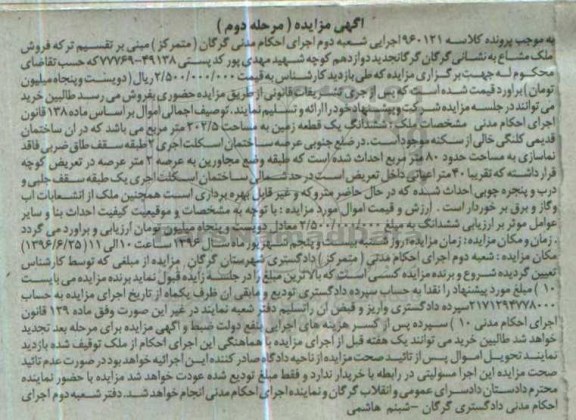 آگهی مزایده ( مرحله دوم )
به موجب پرونده کلاسه ۹۶۰۱۲۱ اجرایی شعبه دوم اجرای احکام مدنی گرگان ( متمرکز ) مبنی بر تقسیم ترکه فروش
ملک مشاع به نشانی گرگان گرگانجدید دوازدهم کوچه شهید مهدی پور کد پستی ۴۹۱۳۸-۷۷۷۶۹ که حسب تقاضای
محکوم له جهت برگزاری مزایده که طی بازدید کارشناس به قیمت ۲/۵۰۰/۰۰۰/۰۰۰ ریال ( دویست و پنجاه میلیون
تومان ) برآورد قیمت شده است که پس از جری تشریفات قانونی از طریق مزایده حضوری بفروش می رسد طالبین خرید
می توانند در جلسه مزایده شرکت و پیشنهاد خود را ارائه و تسلیم نمایند. توصیف اجمالی اموال بر اساس ماده ۱۳۸ قانون
اجرای احکام مدنی مشخصات ملک : ششدانگ یک قطعه زمین به مساحت ۲۰۲/۵ متر مربع می باشد که در آن ساختمان
قدیمی کلنگی خالی از سکنه موجود است. در ضلع جنوبی عرصه ساختمان اسکلت آجری ۲ طبقه سقف طاق ضربی فاقد
نماسازی به مساحت حدود ۸۰ متر مربع احداث شده است که طبقه وضع مجاورین به عرصه ۲ متر عرصه در تعریض کوچه
قرار داشته که تقریبا ۴۰ متر اعیانی داخل تعریض است در حد شمالی ساختمان اسکلت آجری یک طبقه سقف حلبی و
درب و پنجره چوبی احداث شده که در حال حاضر متروکه و غیر قابل بهره برداری است همچنین ملک از انشعابات آب
وگاز و برق بر خوردار است . ارزش و قیمت اموال مورد مزایده : با توجه به مشخصات و موقعیت کیفیت احداث بنا و سایر
عوامل موثر بر ارزیابی ششدانگ به مبلغ ۲/۵۰۰/۰۰۰/۰۰۰ معادل دویست و پنجاه میلیون تومان ارزیابی و برآورد می گردد
. زمان و مکان مزایده : زمان مزایده : روز شنبه بیست و پنجم شهریور ماه سال ۱۳۹۶ ساعت ۱۰ الی ۱۱ (۱۳۹۶/۶/۲۵)
مکان مزایده : شعبه دوم اجرای احکام مدنی ( متمرکز ) دادگستری شهرستان گرگان . مزایده از مبلغی که توسط کارشناس
تعیین گردیده شروع و برنده مزایده کسی است که بالاترین مبلغ را در جلسه مزایده قبول نماید برنده مزایده می بایست
۱۰ ) مبلغ مورد پیشنهاد را نقدا به حساب سپرده دادگستری تودیع و مابقی آن ظرف یکماه از تاریخ اجرای مزایده به حساب
۲۱۷۱۲۹۴۷۷۸۰۰۰ سپرده دادگستری واریز و قبض آن را تسلیم دفتر شعبه نمایند در غیر این صورت وفق ماده ۱۲۹ قانون
اجرای احکام مدنی ۱۰ ) سپرده پس از کسر هزینه های اجرایی بنفع دولت ضبط و آگهی مزایده برای مرحله بعد تجدید
خواهد شد طالبین خرید می توانند یک هفته قبل از اجرای مزایده با هماهنگی این اجرای احکام از ملک توقیف شده بازدید
نمایند تحویل اموال پس از تائید صحت مزایده از ناحیه دادگاه صادر کننده این اجرائیه خواهد بود در صورت عدم تائید
صحت مزایده این اجرا مسولیتی در رابطه با خریدار ندارد و فقط مبلغ تودیع شده عودت خواهد شد مزایده با حضور نماینده
محترم دادستان دادسرای عمومی و انقلاب گرگان و نماینده اجرای احکام مدنی انجام خواهد شد. دفتر شعبه دوم اجرای
احکام مدنی دادگستری گرگان – شبنم هاشمی